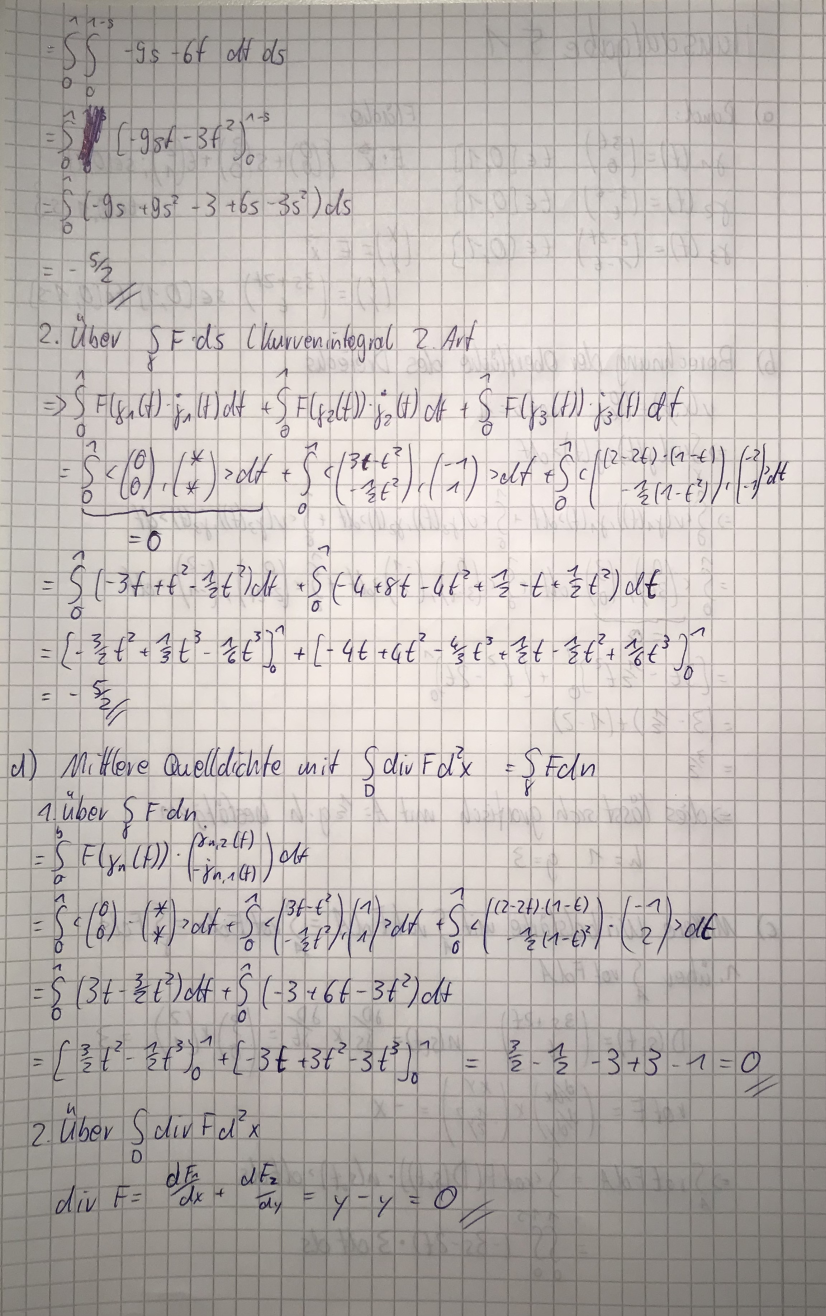 = ∫₀¹ ∫₀^(1-s) -9s - 6t dt ds
= ∫₀¹ [-9st - 3t²]₀^(1-s)
= ∫₀¹ (-9s + 9s² - 3 + 6s - 3s²) ds
= - 5/2
2. Über ∫_γ F·ds (Kurvenintegral 2. Art
=> ∫₀¹ F(γ₁(t)·γ̇₁(t) dt + ∫₀¹ F(γ₂(t))·γ̇₂(t) dt + ∫₀¹ F(γ₃(t))·γ̇₃(t) dt
= ∫₀¹ <(0 0), (* *)> dt + ∫₀¹ <(3t-t² -½t²), (-1 1)> dt + ∫₀¹ <((2-2t)·(1-t) -½(1-t²)), (-2 -1)> dt
= 0
= ∫₀¹ (-3t + t² - ½t²) dt + ∫₀¹ (-4 + 8t - 4t² + ½ - t + ½t²) dt
= [-3/2 t² + 1/3 t³ - 1/6 t³]₀¹ + [-4t + 4t² - 4/3 t³ + ½t - ½t² + 1/6 t³]₀¹
= - 5/2
d) Mittlere Quelldichte mit ∫_D div F d²x = ∫_γ F dn
1. über ∫_γ F·dn
= ∫ₐᵇ F(γₙ(t))·(γ̇ₙ,₂(t) -γ̇ₙ,₁(t)) dt
= ∫₀¹ <(0 0)·(* *)> dt + ∫₀¹ <(3t-t² -½t²), (1 1)> dt + ∫₀¹ <((2-2t)·(1-t) -½(1-t)²)·(-1 2)> dt
= ∫₀¹ (3t - 3/2 t²) dt + ∫₀¹ (-3 + 6t - 3t²) dt
= [3/2 t² - ½t³]₀¹ + [-3t + 3t² - 3t³]₀¹ = 3/2 - 1/2 - 3 + 3 - 1 = 0
2. Über ∫_D div F d²x
div F = dF₁/dx + dF₂/dy = y - y = 0